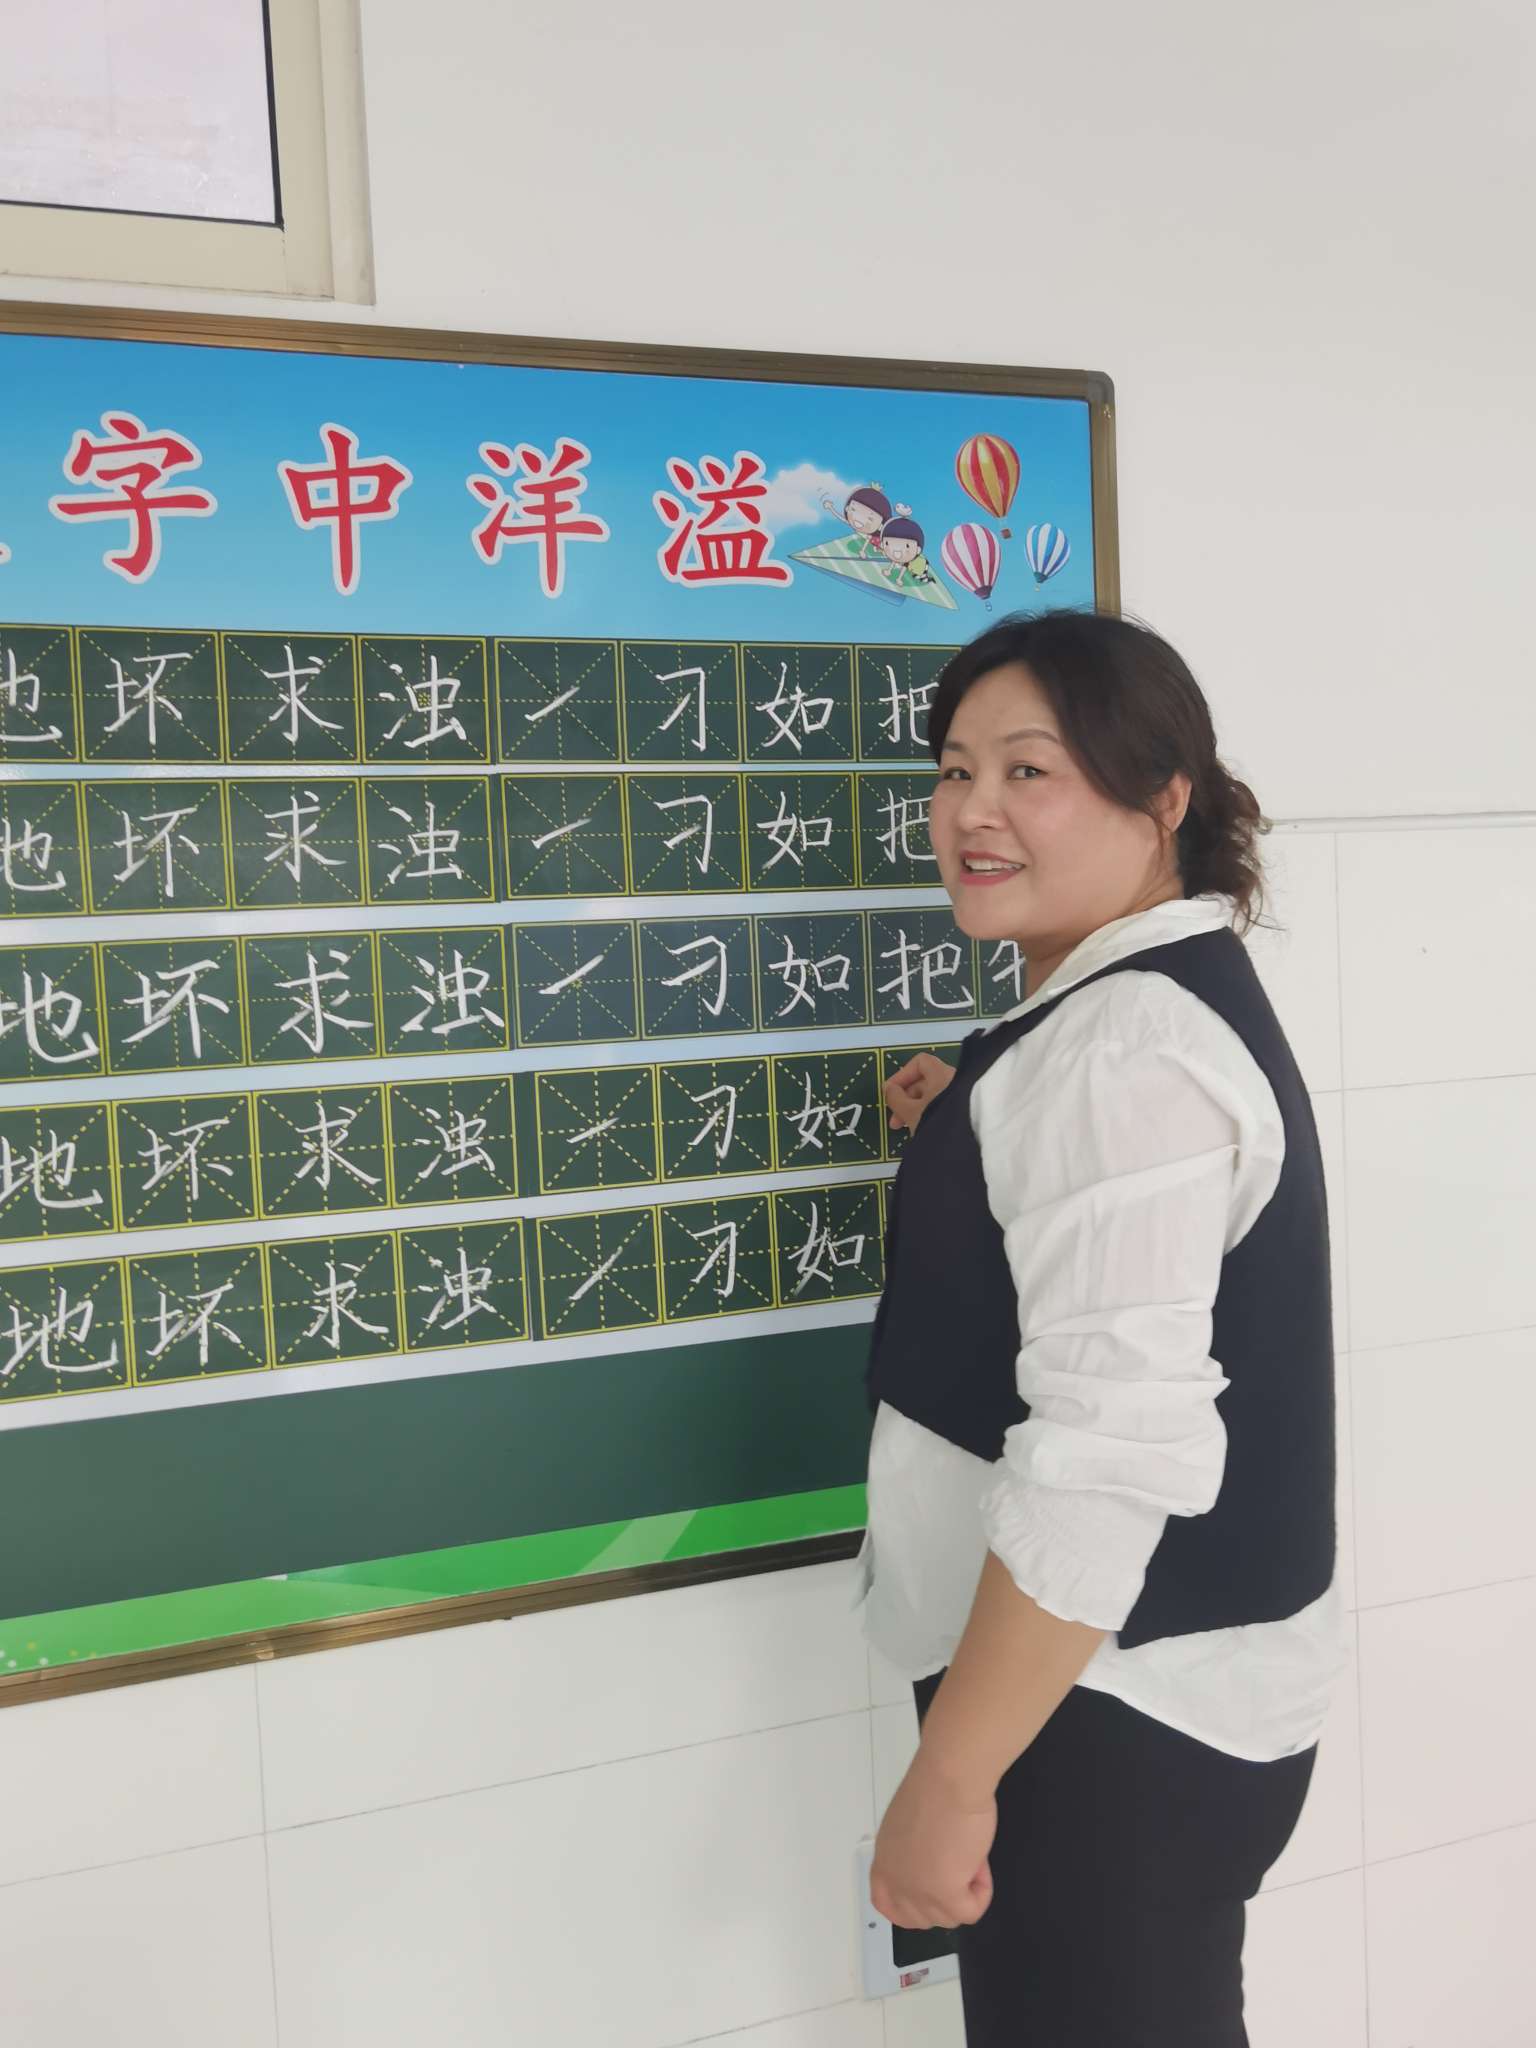 字中洋溢
地坏求浊㇀刁如把
地坏求浊㇀刁如把
地坏求浊㇀刁如把
地坏求浊㇀刁如
地坏求浊㇀刁如